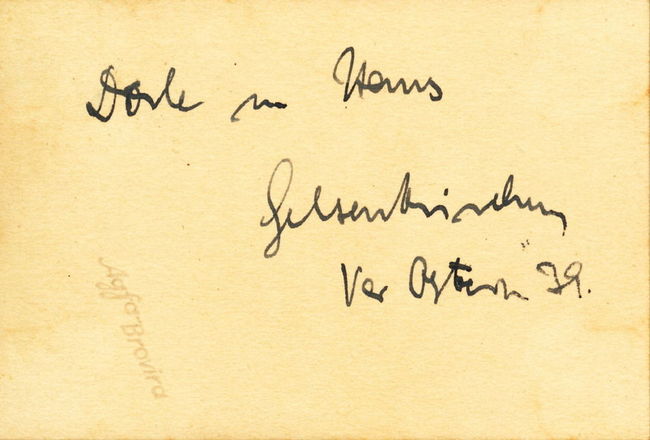 Dorle u Hans
Gelsenkirchen
Vor Ostern 39.
Agfa-Brovira